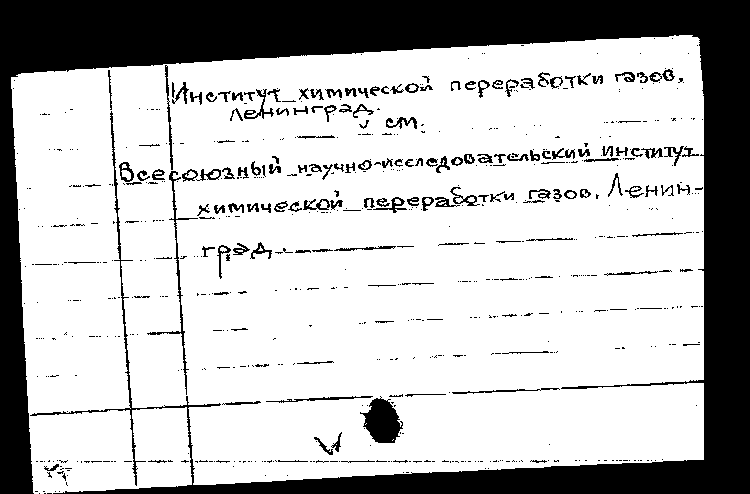 Институт химической переработки газов,
Ленинград.
см.
Всесоюзный научно-исследовательский институт
химической переработки газов, Ленин-
град.